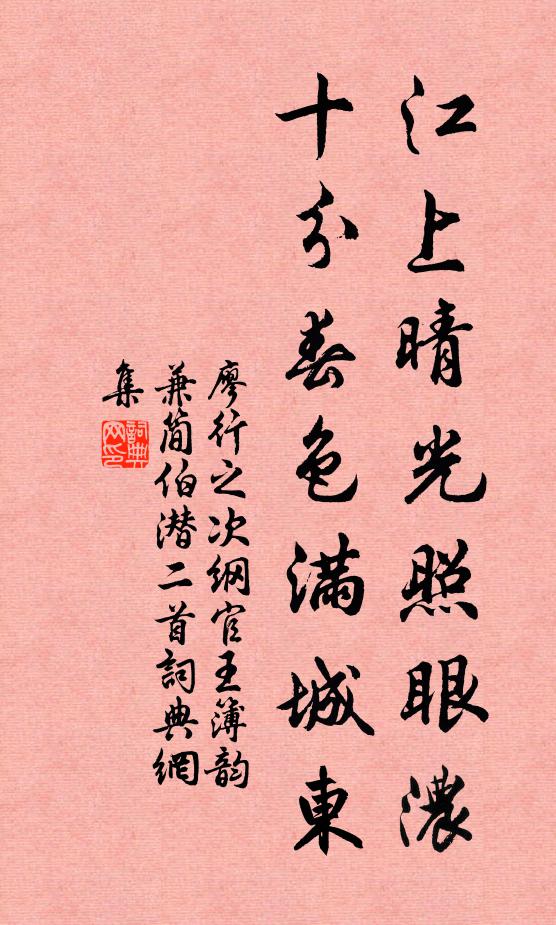 江上晴光照眼濃
十分春色滿城東
廖行之次綱官王簿韵
兼简伯潜二首詞典網
集
詞典
网印